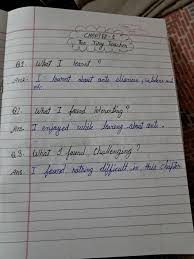 CHAPTER-2
The Tiny Teacher
Q.1. What I learnt?
Ans- I learnt about ants
etc.
Q.2. What I found interesting?
Ans. I enjoyed while learning about ants.
Q.3. What I found challenging?
Ans. I found nothing difficult in this chapter.